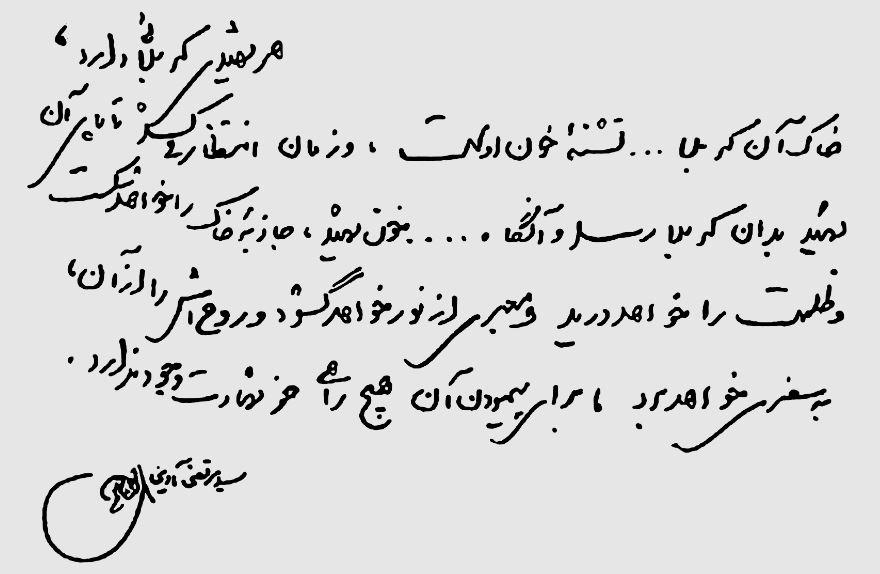 هر شهیدی کربلایی دارد،
خاک آن کربلا ... تشنهٔ خون اوست ، و زمان انتظار می‌کشد تا پای آن
شهید بدان کربلا رسد و آنگاه .... خون شهید ، جاذبهٔ خاک را خواهد شکست
و ظلمت را خواهد درید و معبری از نور خواهد گشود و روحش را از آن،
به سفری خواهد برد که برای پیمودن آن هیچ راهی جز شهادت وجود ندارد.
سید مرتضی آوینی